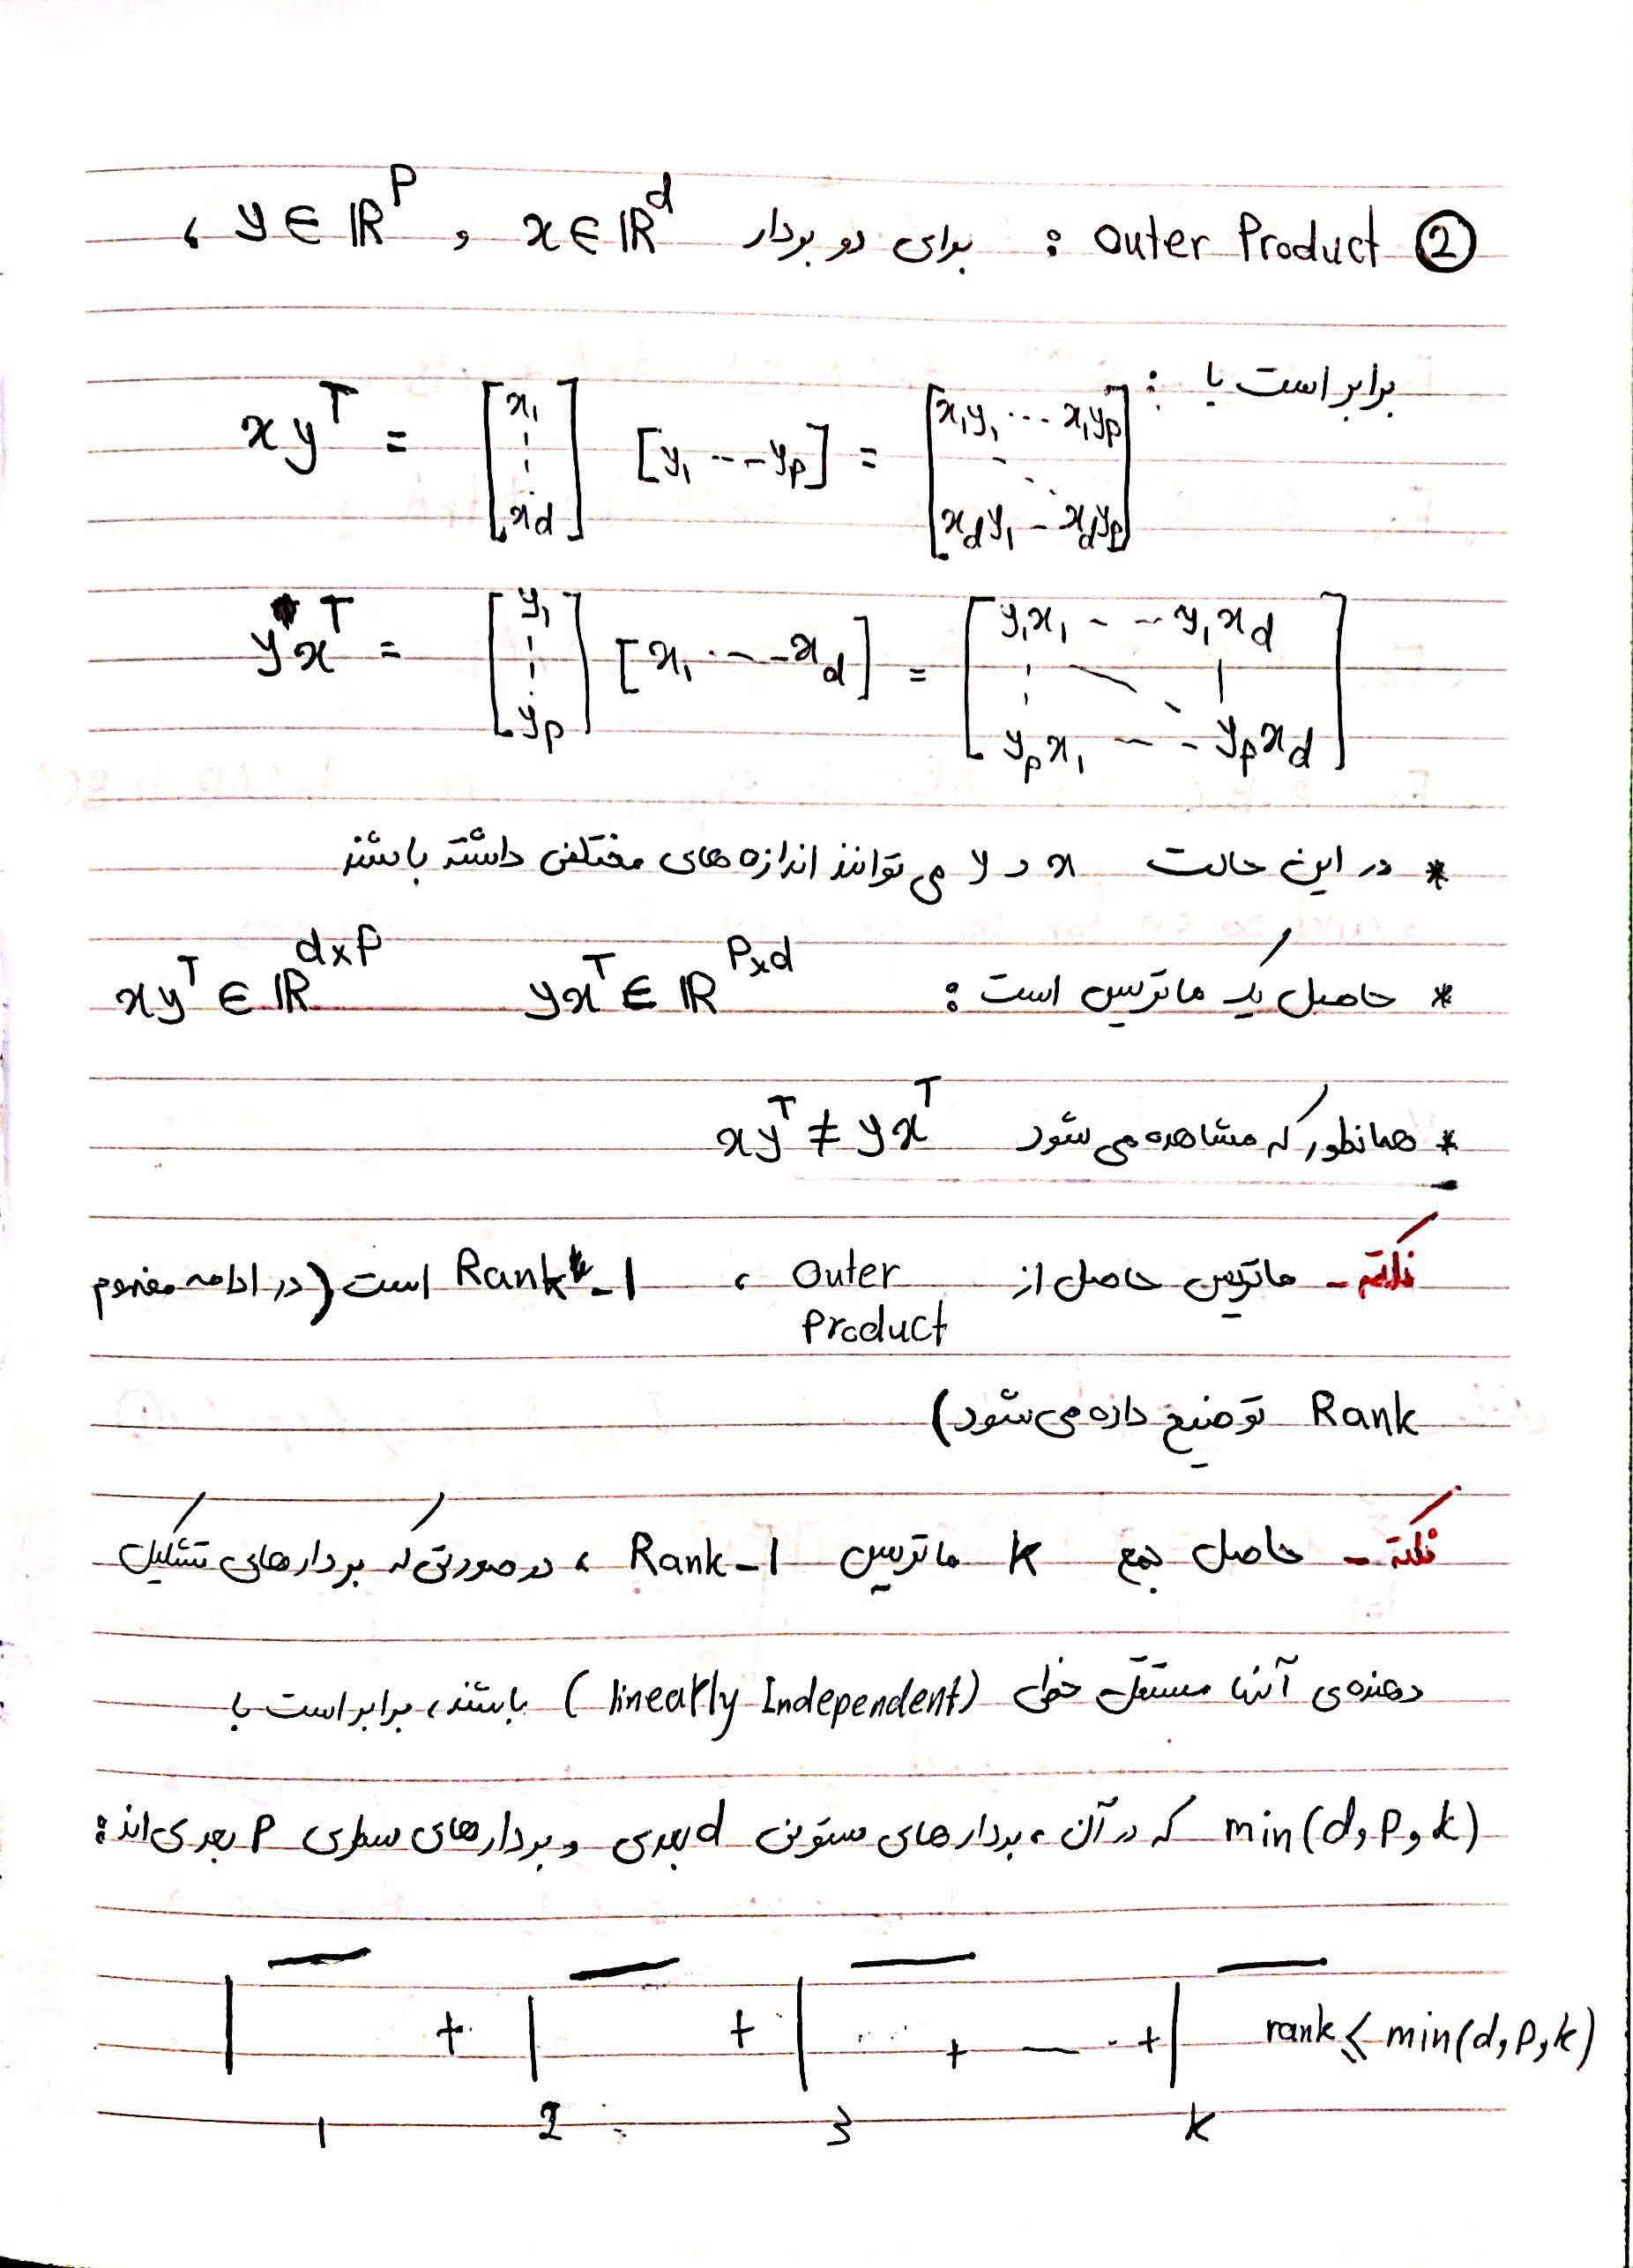 ② Outer Product : برای دو بردار x ∈ ℝ^d و y ∈ ℝ^P ،
برابر است با :
xy^T = [x₁ ⋮ x_d] [y₁ --- y_p] = [x₁y₁ ... x₁y_p ⋱ x_dy₁ - x_dy_p]
yx^T = [y₁ ⋮ y_p] [x₁ --- x_d] = [y₁x₁ --- y₁x_d ⋮ ⋱ ⋮ y_px₁ --- y_px_d]
* در این حالت x و y می توانند اندازه های مختلفی داشته باشند
* حاصل یک ماتریس است : yx^T ∈ ℝ^{P×d} xy^T ∈ ℝ^{d×P}
* همانطور که مشاهده می شود xy^T ≠ yx^T
نکته - ماتریس حاصل از Outer Product ، Rank-1 است (در ادامه مفهوم
Rank توضیح داده می شود)
نکته - حاصل جمع k ماتریس Rank-1 ، در صورتی که بردارهای تشکیل
دهنده ی آنها مستقل خطی (linearly Independent) باشند، برابر است با
min(d,P,k) که در آن ، بردارهای ستونی d بعدی و بردارهای سطری P بعدی اند :
+ + + --- + rank ≤ min(d,P,k)
1 2 3 k